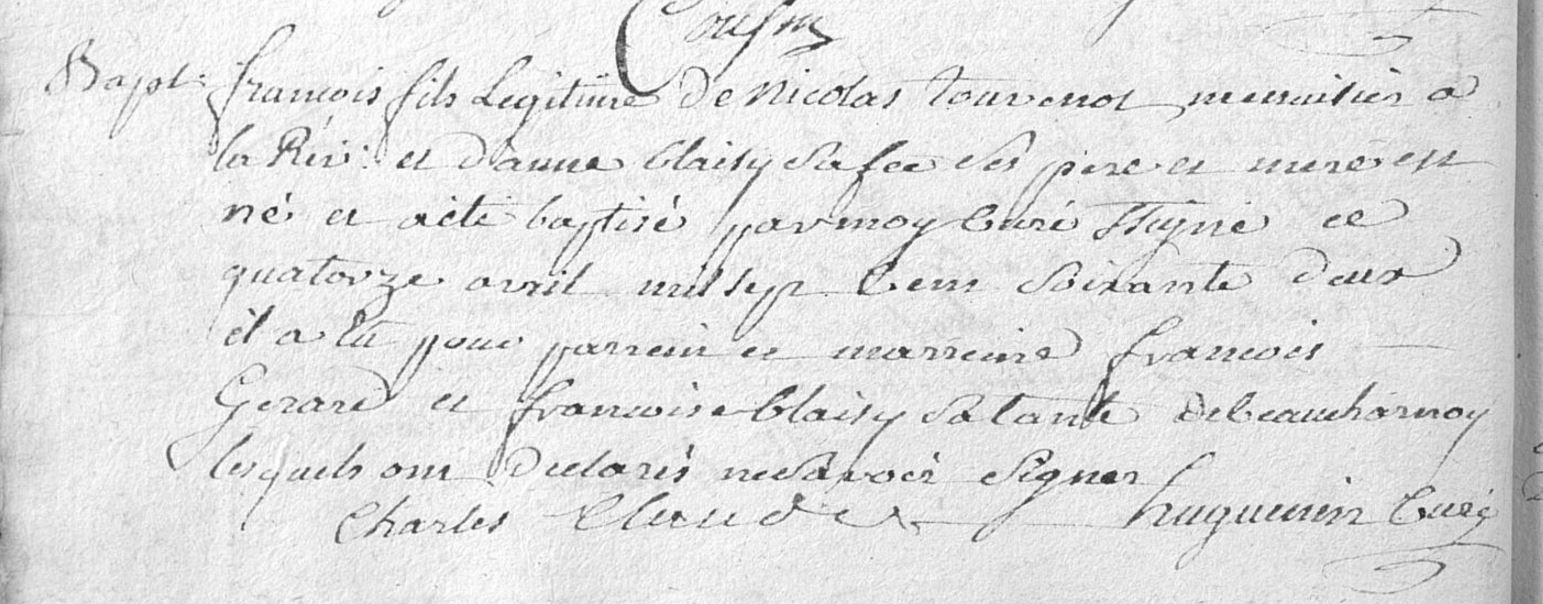 Cousin
Bapt: francois fils Legitime de Nicolas Touvenot menuisier a
la Riv: et d'anne blaisy sa fee ses pere et mere est
né et aété baptisé par moy Curé ssigné ce
quatorze avril mil sept Cent soixante deux
il a Eu pour parrein et marreine francois
Gerard et francoise blaisy sa tante de beaucharmoy
lesquels ont declarés ne savoir signer
Charles huguenin Curé